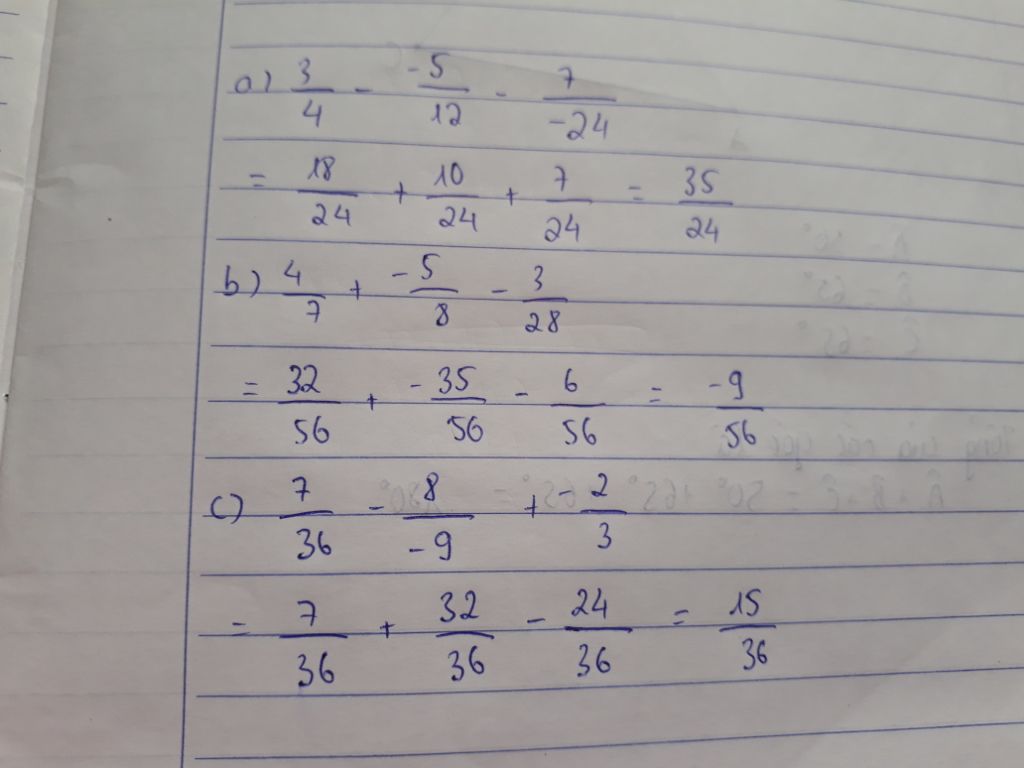 a) 3/4 - -5/12 - 7/-24
= 18/24 + 10/24 + 7/24 = 35/24
b) 4/7 + -5/8 - 3/28
= 32/56 + -35/56 - 6/56 = -9/56
c) 7/36 - 8/-9 + -2/3
= 7/36 + 32/36 - 24/36 = 15/36